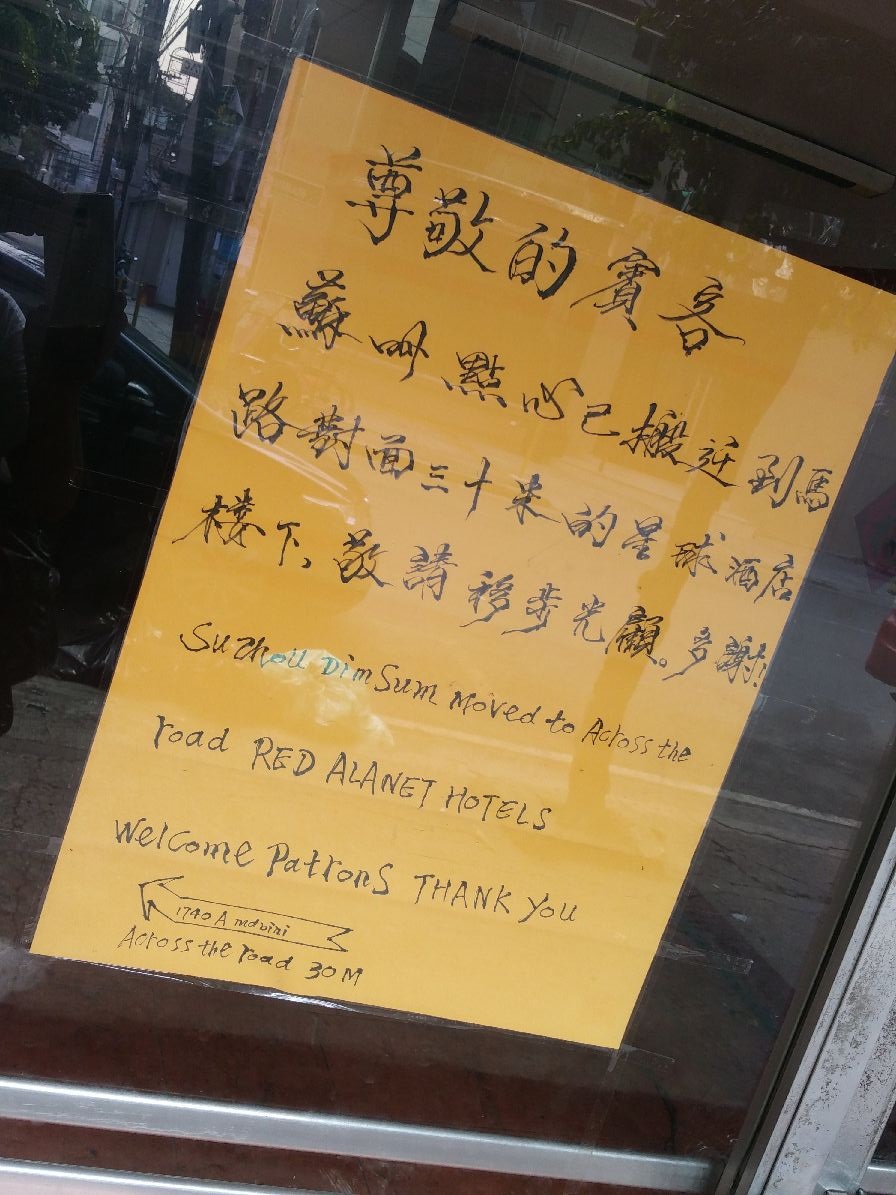 尊敬的賓客
蘇州點心已搬迁到馬
路對面三十米的星球酒店
楼下、敬請移步光顧。多謝!
SuZhou DimSum moved to Across the
road RED ALANET HOTELS
Welcome PatronS THANK YOU
1740A mabini
Across the road 30M